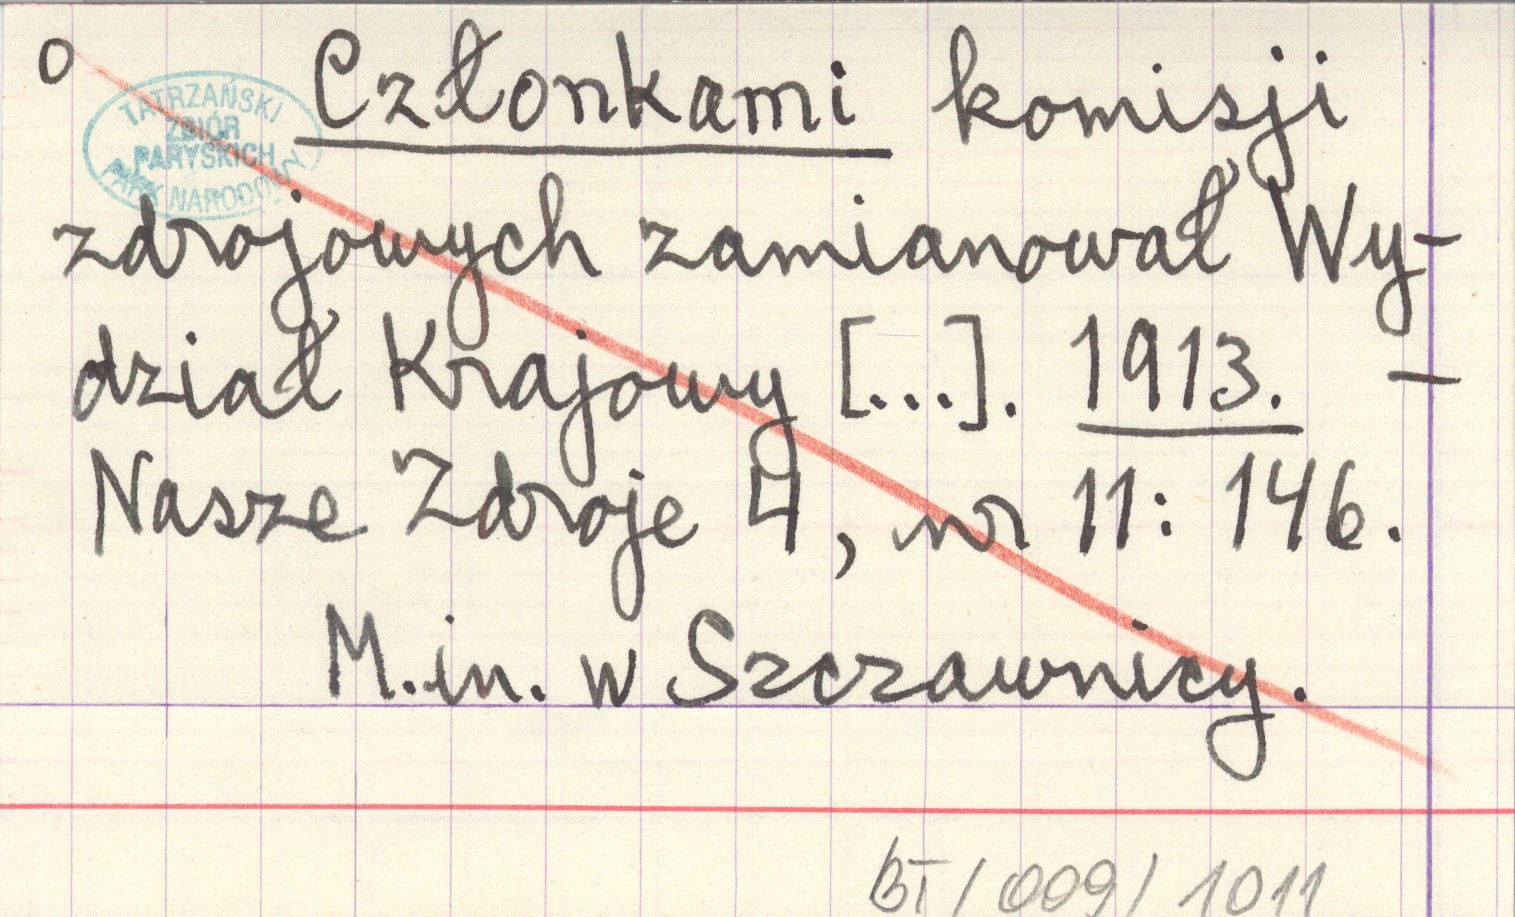 o Członkami komisji
TATRZAŃSKI
ZBIÓR
PARYSKICH
PARK NARODOWY
zdrojowych zamianował Wy-
dział Krajowy [...]. 1913. –
Nasze Zdroje 4, nr 11: 146.
M.in. w Szczawnicy.
BT/009/1011